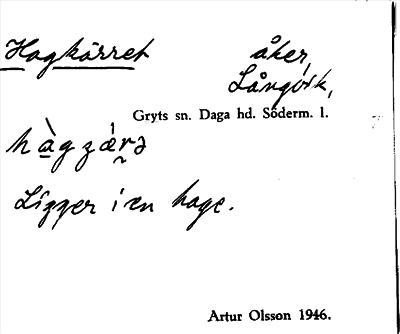 Hagkärret åker,
Långvik,
Gryts sn. Daga hd. Söderm. l.
Ligger i en hage.
Artur Olsson 1946.